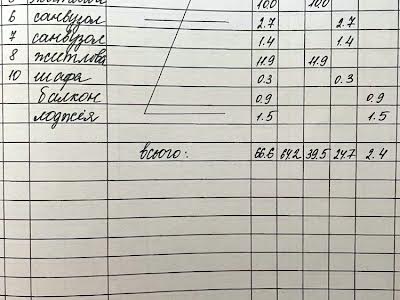 6 санвузол 2.7 2.7
7 санвузол 1.4 1.4
8 житлова 11.9 11.9
10 шафа 0.3 0.3
балкон 0.9 0.9
лоджія 1.5 1.5
всього: 66.6 64.2 39.5 24.7 2.4